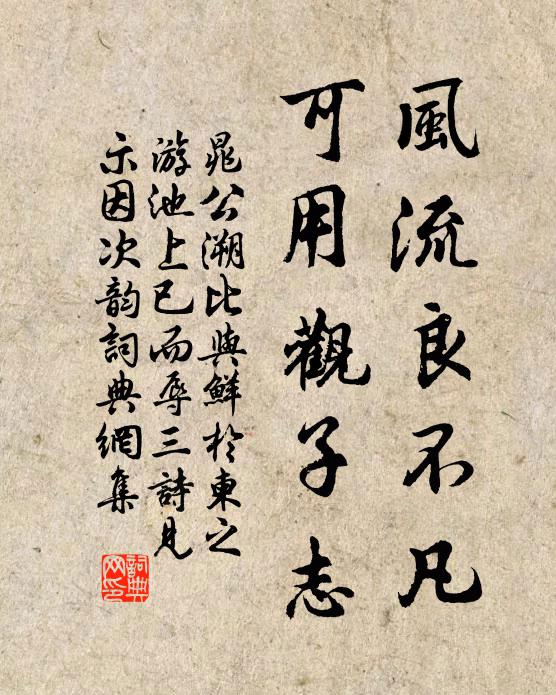 風流良不凡
可用觀子志
晁公溯比與鮮於東之
游池上已而辱三詩見
示因次韵詞典網集
詞典
网印